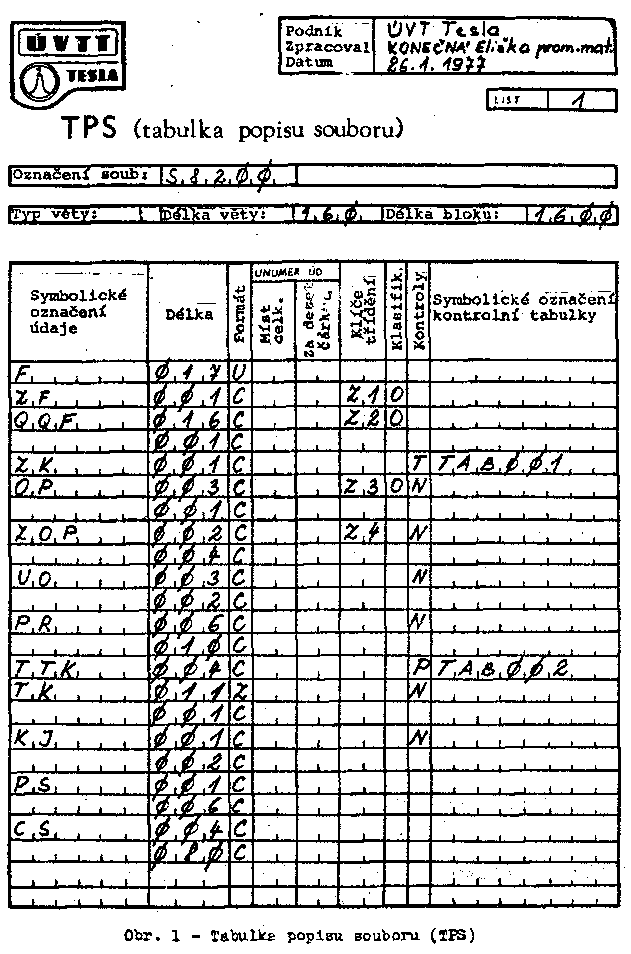 ÚVTT
TESLA
Podnik ÚVT Tesla
Zpracoval KONEČNÁ Eliška prom.mat.
Datum 26.1.1977
LIST 1
TPS (tabulka popisu souboru)
Označení soub: S8200
Typ věty: Délka věty: 160 Délka bloku: 1600
Symbolické označení údaje Délka Formát UNUMER ÚD Míst celk. Za deset. čárk. Klíče třídění Klasifik. Kontroly Symbolické označení kontrolní tabulky
F 017 U
ZF 001 C Z1 O
QQF 016 C Z2 O
001 C
ZK 001 C T TAB001
OP 003 C Z3 O N
001 C
ZOP 002 C Z4 N
004 C
UO 003 C N
002 C
PR 006 C N
010 C
TTK 004 C P TAB002
TK 011 Z N
001 C
KJ 001 C N
002 C
PS 001 C
006 C
CS 004 C
080 C
Obr. 1 - Tabulka popisu souboru (TPS)